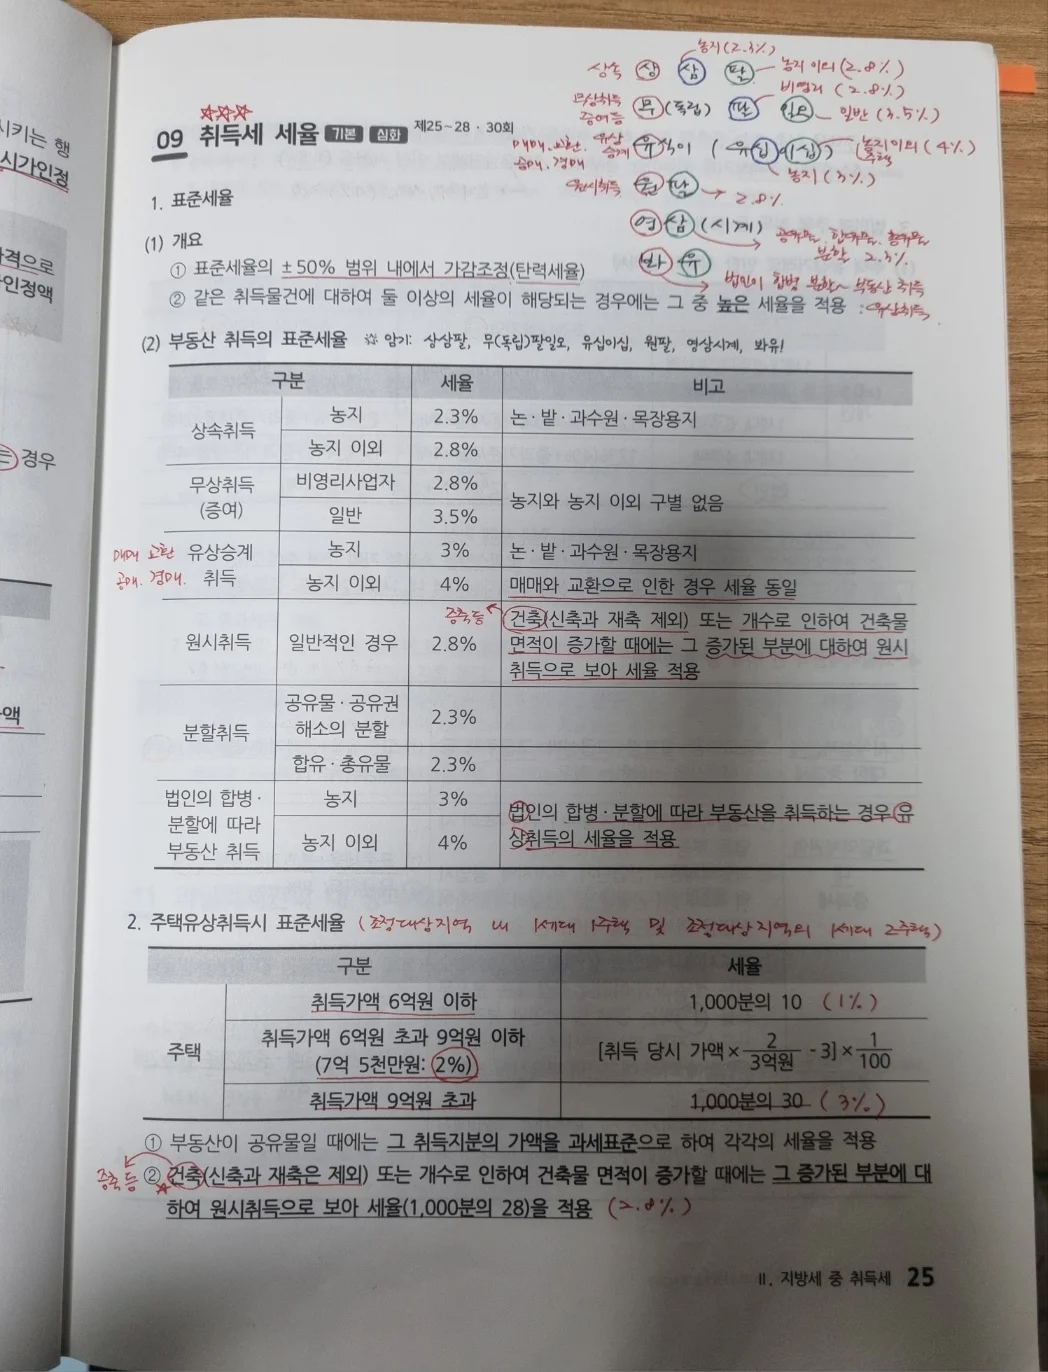 시키는 행
시가인정
가격으로
인정액
경우
액
농지(2.3%)
상속 상 상 팔 농지 이외(2.8%)
비영리(2.8%)
무상취득
증여등
무(독립) 팔 일오 일반(3.5%)
매매.교환. 유상
공매.경매 승계
유 (유십이십) 농지이외(4%)
주택
농지(3%)
원시취득 원 팔 → 2.8%
영 삼 (시계)
공유물. 합유물. 총유물
분할. 2.3%
봐 유
법인이 합병 분할~ 부동산 취득
: 유상취득
☆☆☆
09 취득세 세율 기본 심화 제25~28·30회
1. 표준세율
(1) 개요
① 표준세율의 ±50% 범위 내에서 가감조정(탄력세율)
② 같은 취득물건에 대하여 둘 이상의 세율이 해당되는 경우에는 그 중 높은 세율을 적용
(2) 부동산 취득의 표준세율 암기: 상상팔, 무(독립)팔일오, 유십이십, 원팔, 영삼시계, 봐유!
구분 세율 비고
상속취득 농지 2.3% 논·밭·과수원·목장용지
농지 이외 2.8%
무상취득
(증여)
비영리사업자 2.8%
일반 3.5%
농지와 농지 이외 구별 없음
매매 교환
공매. 경매.
유상승계
취득
농지 3% 논·밭·과수원·목장용지
농지 이외 4% 매매와 교환으로 인한 경우 세율 동일
원시취득 일반적인 경우 2.8%
증축등
건축(신축과 재축 제외) 또는 개수로 인하여 건축물
면적이 증가할 때에는 그 증가된 부분에 대하여 원시
취득으로 보아 세율 적용
분할취득
공유물·공유권
해소의 분할
2.3%
합유·총유물 2.3%
법인의 합병·
분할에 따라
부동산 취득
농지 3%
농지 이외 4%
법인의 합병·분할에 따라 부동산을 취득하는 경우 유
상취득의 세율을 적용
2. 주택유상취득시 표준세율 (조정대상지역 내 1세대 1주택 및 조정대상지역외 1세대 2주택)
구분 세율
주택
취득가액 6억원 이하 1,000분의 10 (1%)
취득가액 6억원 초과 9억원 이하
(7억 5천만원: 2%)
[취득 당시 가액 × 2/3억원 - 3] × 1/100
취득가액 9억원 초과 1,000분의 30 (3%)
① 부동산이 공유물일 때에는 그 취득지분의 가액을 과세표준으로 하여 각각의 세율을 적용
증축 등
② 건축(신축과 재축은 제외) 또는 개수로 인하여 건축물 면적이 증가할 때에는 그 증가된 부분에 대
하여 원시취득으로 보아 세율(1,000분의 28)을 적용 (2.8%)
II. 지방세 중 취득세 25